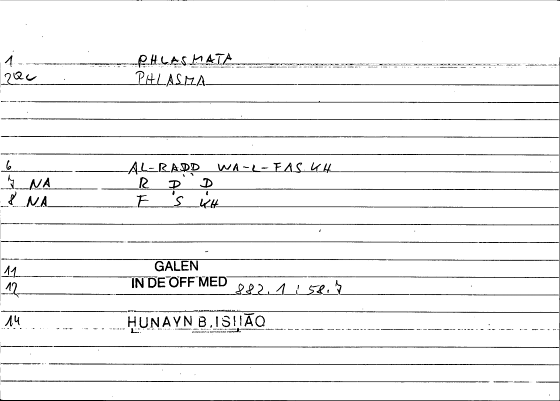 1 PHLASMATA
2QU PHLASMA
6 AL-RADD WA-L-FASKH
7 NA R D D
8 NA F S KH
11 GALEN
12 IN DE OFF MED 882.1 : 58.7
14 HUNAYN B. ISḤĀQ